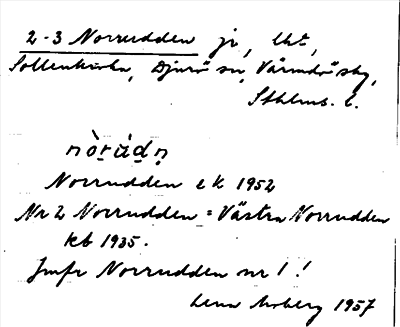 2-3 Norrudden jr, lht,
Sollenkroka, Djurö sn, Värmdö skg,
Sthlms. l.
nòrùdn
Norrudden ek 1952
Nr 2 Norrudden = Västra Norrudden
kb 1935.
Jmfr Norrudden nr 1!
Lena Moberg 1957